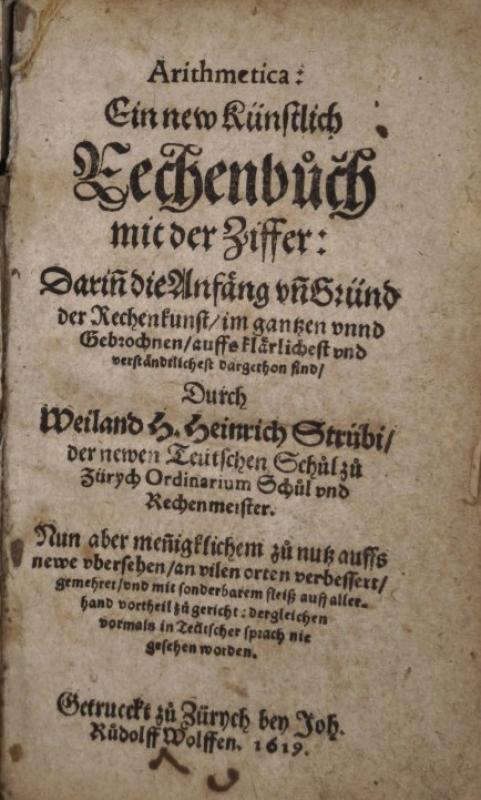 Arithmetica:
Ein new Künstlich
Rechenbůch
mit der Ziffer:
Dariñ die Anfäng vñ Gründ
der Rechenkunst/ im gantzen vnnd
Gebrochnen/ auffs klärlichest vnd
verständtlichest dargethon sind/
Durch
Weiland H. Heinrich Strübi/
der newen Teütschen Schůl zů
Zürych Ordinarium Schůl vnd
Rechenmeister.
Nun aber meñigklichem zů nutz auffs
newe vbersehen/ an vilen orten verbessert/
gemehret/ vnd mit sonderbarem fleiß auff aller-
hand vortheil zů gericht: dergleichen
vormals in Teütscher sprach nie
gesehen worden.
Getruckt zů Zürych bey Joh.
Růdolff Wolffen. 1619.